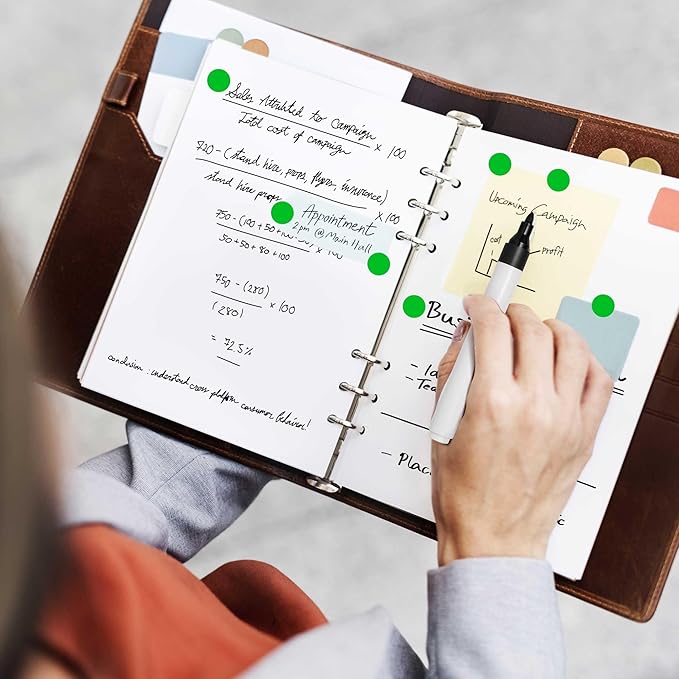 Sales Attributed to Campaign
Total cost of campaign × 100
720 - (stand hire, props, flyers, insurance)
stand hire props × 100
Appointment
2 pm @ Main Hall
750 - (100 + 50 +
50 + 50 + 80 + 100 × 100
750 - (280)
(280) × 100
= 72.5%
conclusion : understand cross platform consumer behaviour!
Upcoming Campaign
cost
profit
Bus
-
-
- Plac